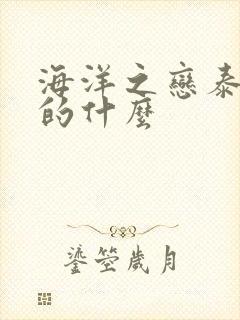 海洋之戀泰
的什麼
鎏箜歲月